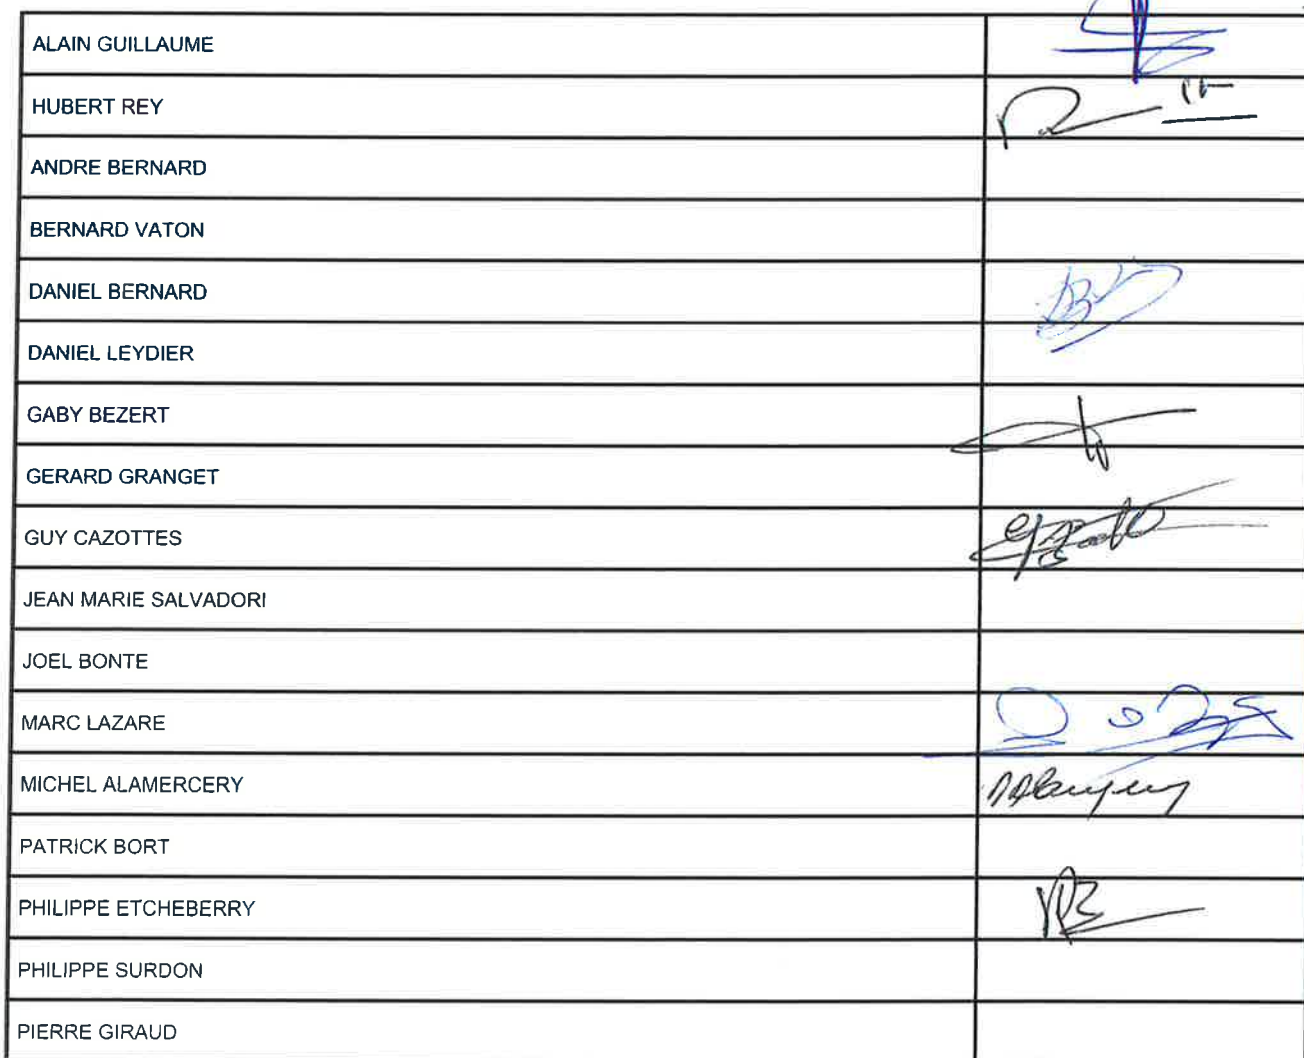 ALAIN GUILLAUME
HUBERT REY
ANDRE BERNARD
BERNARD VATON
DANIEL BERNARD
DANIEL LEYDIER
GABY BEZERT
GERARD GRANGET
GUY CAZOTTES
JEAN MARIE SALVADORI
JOEL BONTE
MARC LAZARE
MICHEL ALAMERCERY
PATRICK BORT
PHILIPPE ETCHEBERRY
PHILIPPE SURDON
PIERRE GIRAUD